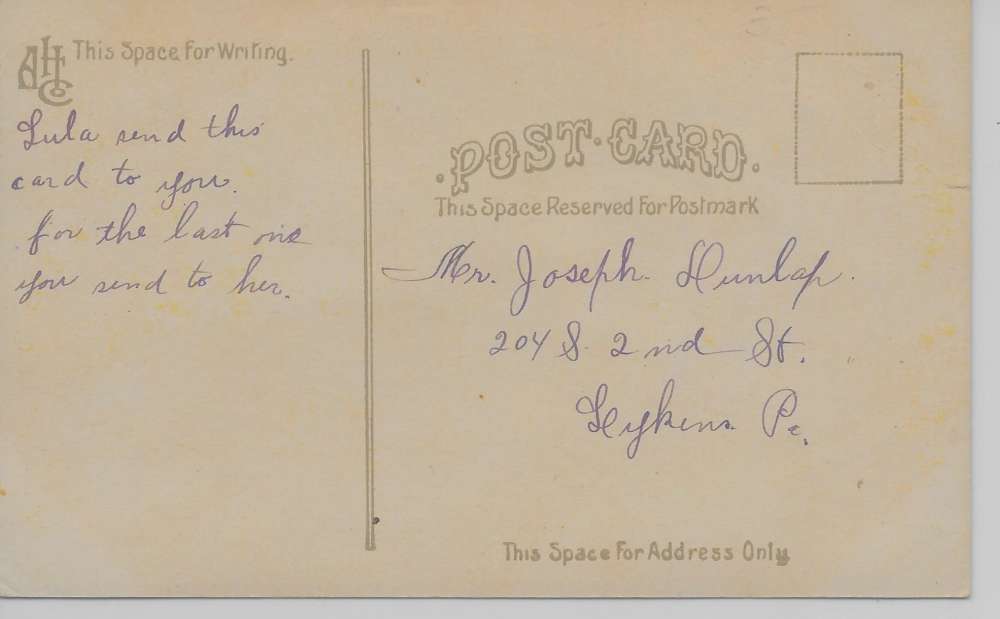 AHCo
This Space For Writing.
Lula send this
card to you.
for the last one
you send to her.
POST CARD.
This Space Reserved For Postmark
Mr. Joseph. Dunlap.
204 S. 2nd St.
Lykens. Pa.
This Space For Address Only